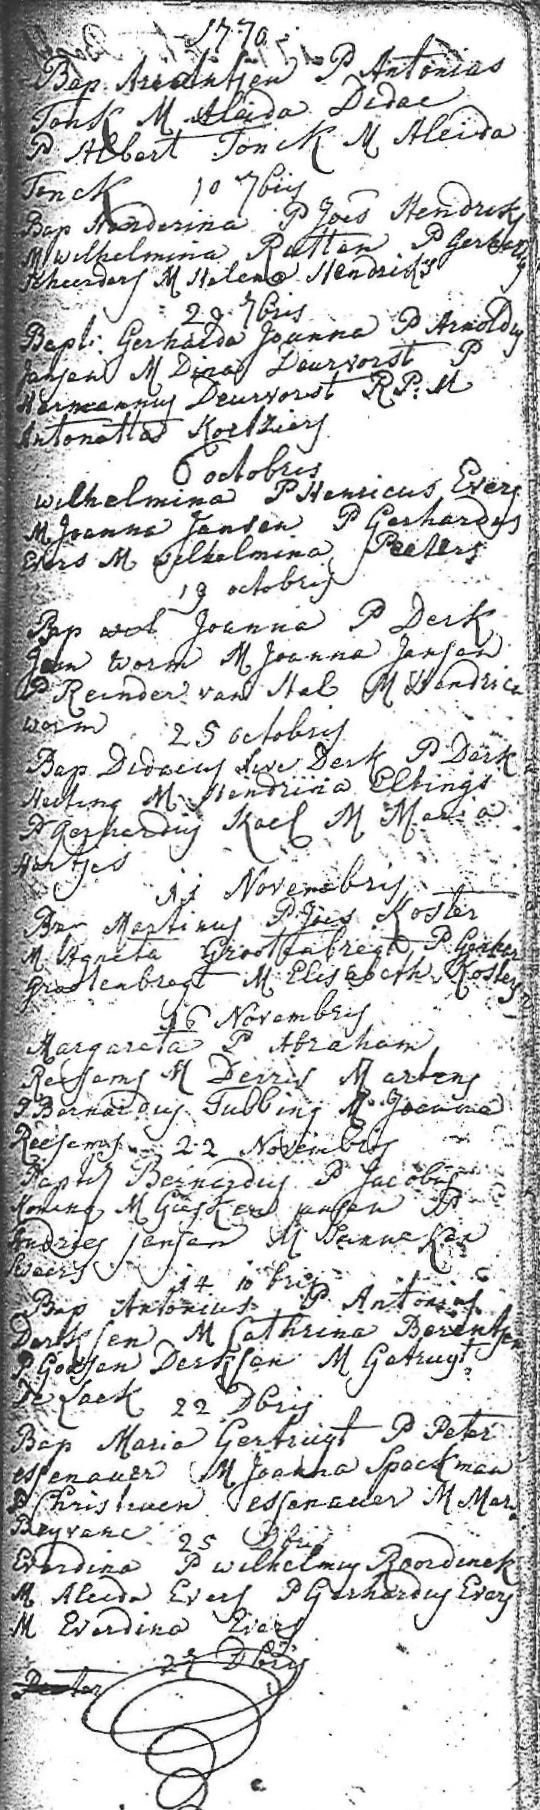 1770
Bap Arentjen P Antonias
Tonk M Aleida Didae
P Albert Tonck M Aleida
Tonck 10 7bris
Bap Henderina P Joes Hendriks
M Wilhelmina Rutten P Gerhardus
M Helena Hendriks
29 7bris
Bapt: Gerharda Joanna P Arnoldus
Jansen M Dina Deurvorst P
Hermannus Deurvorst R.P: M
Antonetta Koetziers
6 octobris
wilhelmina P Henricus Evers
M Joanna Jansen P Gerhardus
Evers M wilhelmina Peeters
19 octobris
Bap Joanna P Derk
Jan Worm M Joanna Jansen
P Reinder van Hal M Hendrica
worm 25 octobris
Bap Didacus sive Derk P Derk
Heiting M Hendrina Eltings
P Gerhardus Kael M Maria
Hartjes
11 Novembris
Bap Martinus P Joes Koster
M Agneta Grootenbregt P
Grootenbregt M Elisabeth Kosters
16 Novembris
Margareta P Abraham
Reesems M Derris Martens
P Bernardus Tubbing M Joanna
Reesems 22 Novembris
Bapt Bernardus P Jacobus
Koning M jansen P
Andries jansen M Janneken
Sweers
14 10bris
Bap Antonius P Antonius
Derksen M Cathrina Berentsen
P Gossen Derksen M Getruyt
De Lack 22 Dbris
Bap Maria Gertruyt P Peter
essenauer M Joanna Spoekman
P Christiaen essenauer M Mar
25 Dbris
Everdina P wilhelmus Roordinck
M Aleida Evers P Gerhardus Evers
M Everdina Evers
27 Dbris
Peeter